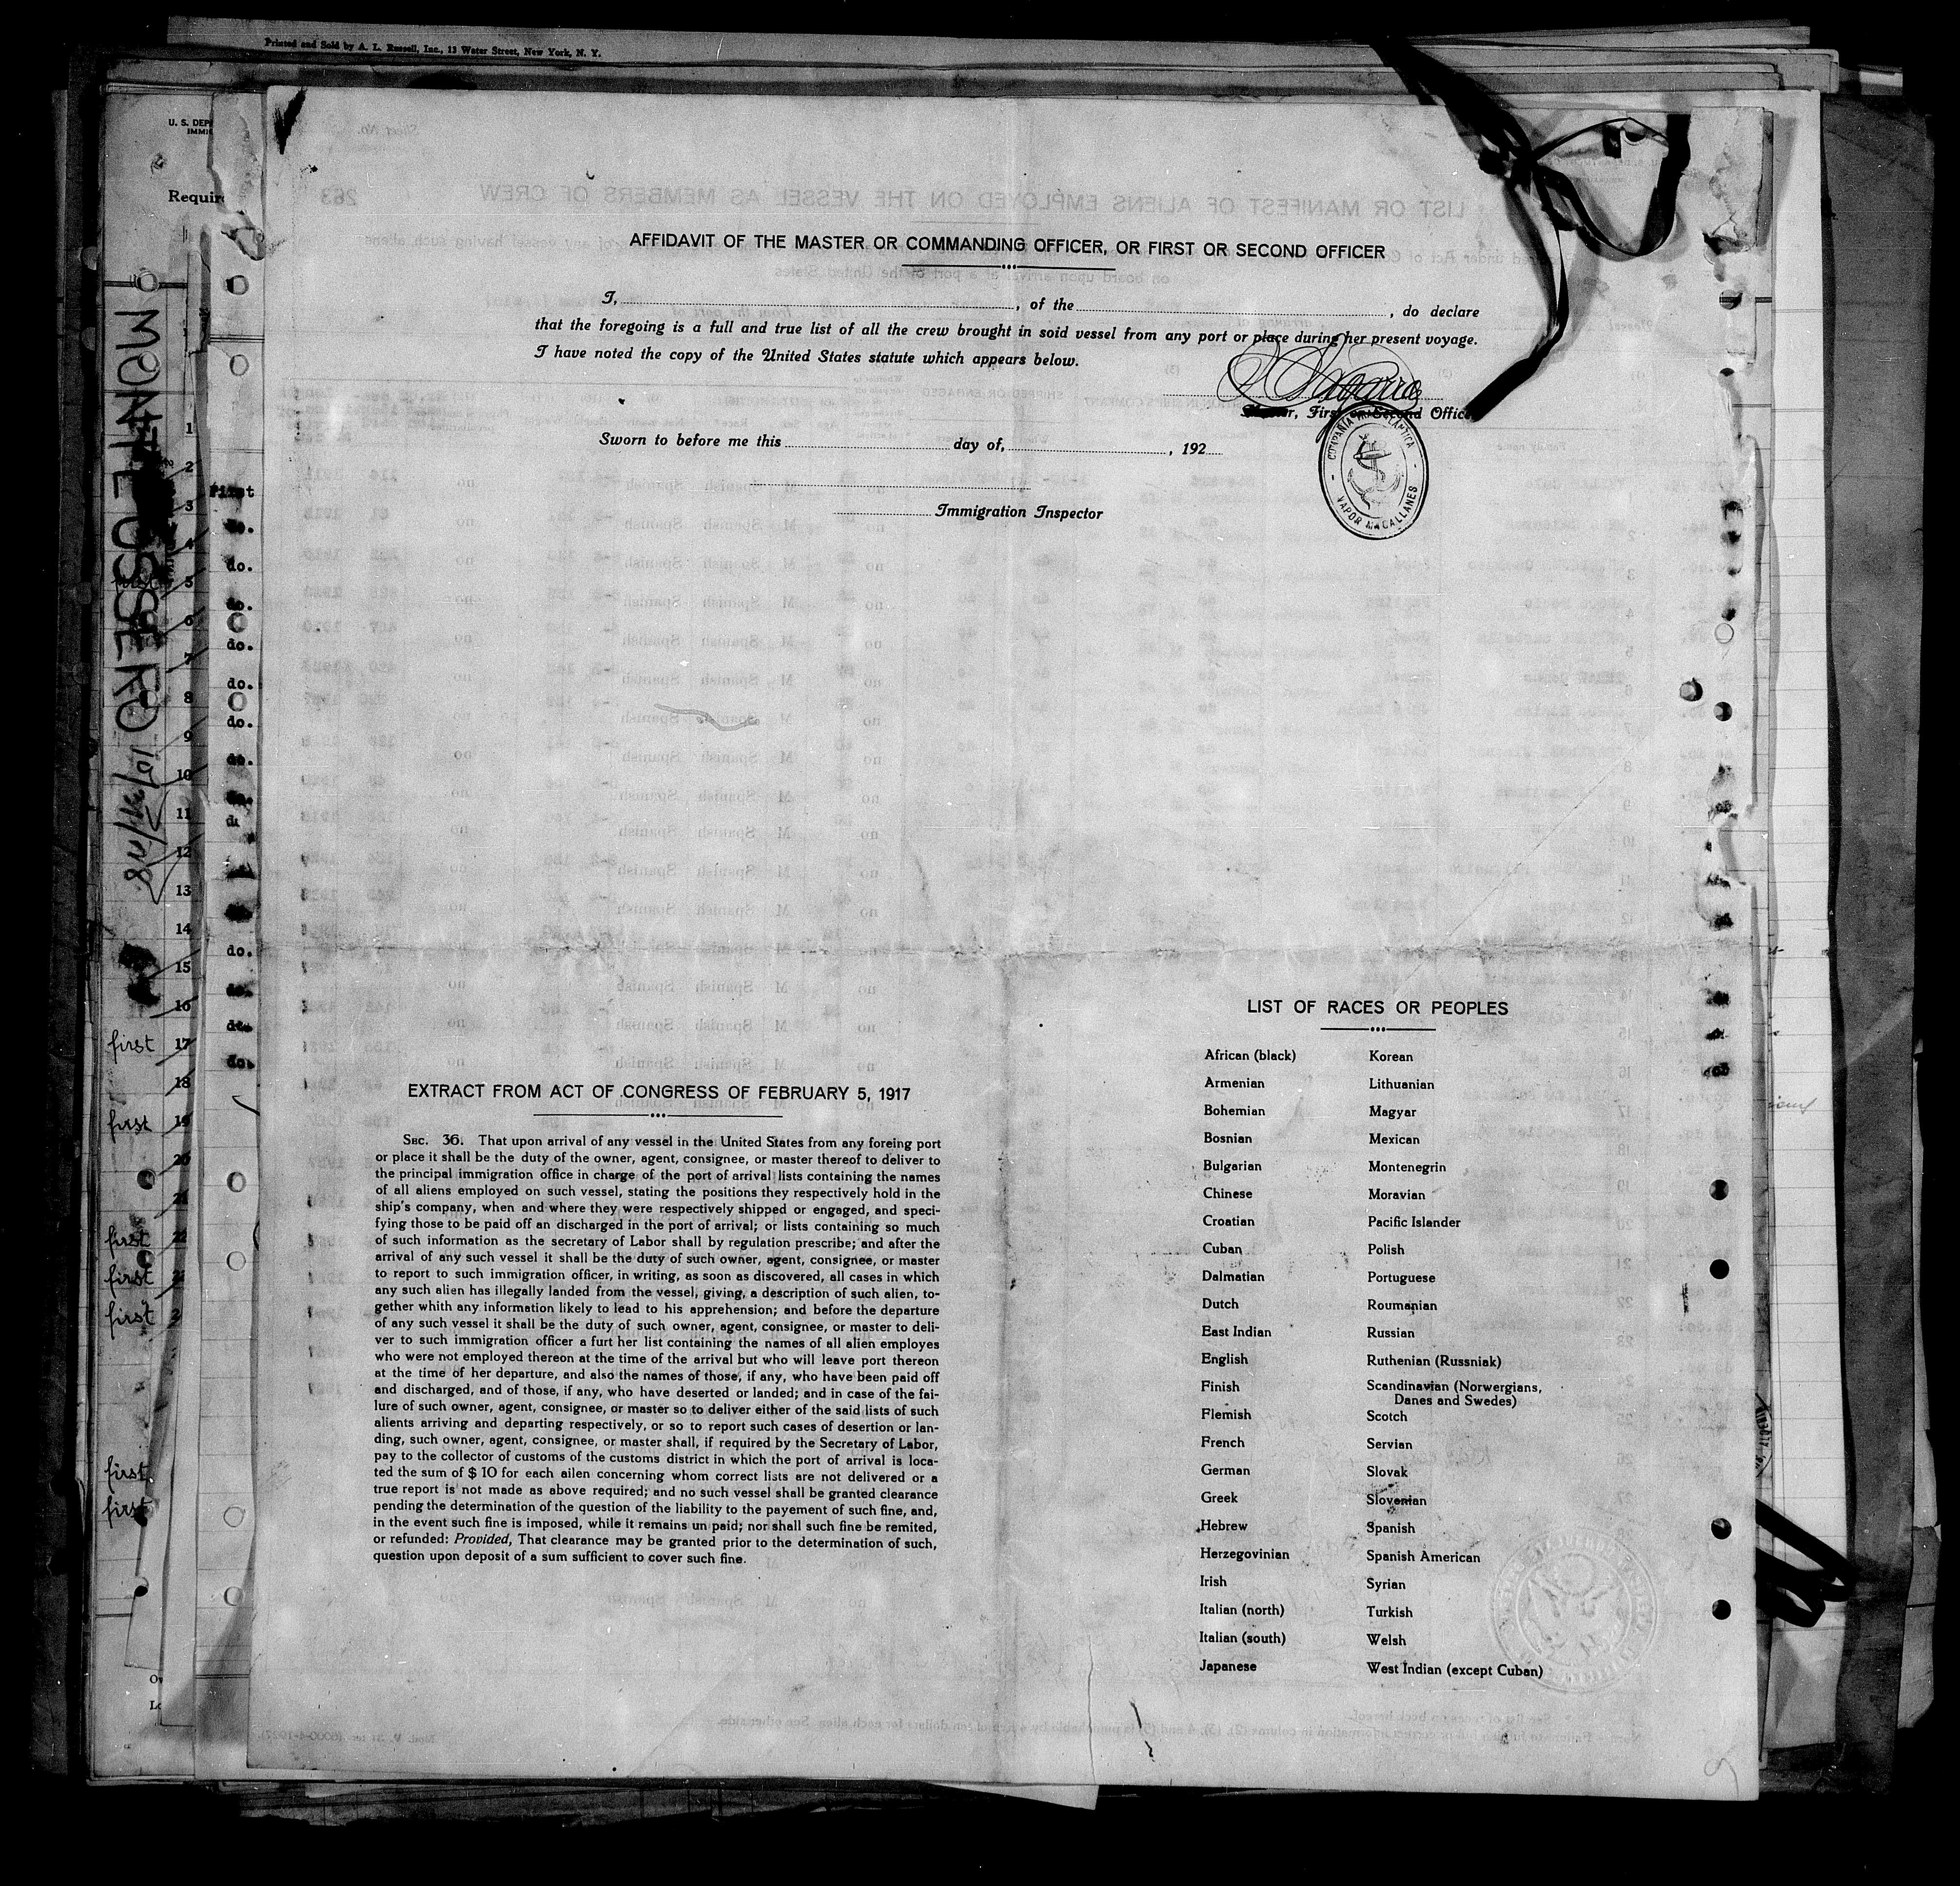 Printed and Sold by A. L. Russell, Inc., 13 Water Street, New York, N. Y.
U. S. DEP
IMMI
Requir
MONTE OSSERO
AFFIDAVIT OF THE MASTER OR COMMANDING OFFICER, OR FIRST OR SECOND OFFICER
I, , of the , do declare
that the foregoing is a full and true list of all the crew brought in soid vessel from any port or place during her present voyage.
I have noted the copy of the United States statute which appears below.
Master, First or Second Officer
Sworn to before me this day of, , 192
Immigration Inspector
VAPOR MAGALLANES
1
2
3
4
5
6
7
8
9
10
11
12
13
14
15
16
17
18
19
20
21
22
First
do.
do.
do.
do.
do.
do.
do.
do.
first
first
first
first
first
first
first
EXTRACT FROM ACT OF CONGRESS OF FEBRUARY 5, 1917
SEC. 36. That upon arrival of any vessel in the United States from any foreing port
or place it shall be the duty of the owner, agent, consignee, or master thereof to deliver to
the principal immigration office in charge of the port of arrival lists containing the names
of all aliens employed on such vessel, stating the positions they respectively hold in the
ship's company, when and where they were respectively shipped or engaged, and speci-
fying those to be paid off an discharged in the port of arrival; or lists containing so much
of such information as the secretary of Labor shall by regulation prescribe; and after the
arrival of any such vessel it shall be the duty of such owner, agent, consignee, or master
to report to such immigration officer, in writing, as soon as discovered, all cases in which
any such alien has illegally landed from the vessel, giving, a description of such alien, to-
gether whith any information likely to lead to his apprehension; and before the departure
of any such vessel it shall be the duty of such owner, agent, consignee, or master to deli-
ver to such immigration officer a furt her list containing the names of all alien employes
who were not employed thereon at the time of the arrival but who will leave port thereon
at the time of her departure, and also the names of those, if any, who have been paid off
and discharged, and of those, if any, who have deserted or landed; and in case of the fai-
lure of such owner, agent, consignee, or master so to deliver either of the said lists of such
alients arriving and departing respectively, or so to report such cases of desertion or lan-
ding, such owner, agent, consignee, or master shall, if required by the Secretary of Labor,
pay to the collector of customs of the customs district in which the port of arrival is loca-
ted the sum of $ 10 for each ailen concerning whom correct lists are not delivered or a
true report is not made as above required; and no such vessel shall be granted clearance
pending the determination of the question of the liability to the payement of such fine, and,
in the event such fine is imposed, while it remains un paid; nor shall such fine be remited,
or refunded: Provided, That clearance may be granted prior to the determination of such,
question upon deposit of a sum sufficient to cover such fine.
LIST OF RACES OR PEOPLES
African (black) Korean
Armenian Lithuanian
Bohemian Magyar
Bosnian Mexican
Bulgarian Montenegrin
Chinese Moravian
Croatian Pacific Islander
Cuban Polish
Dalmatian Portuguese
Dutch Roumanian
East Indian Russian
English Ruthenian (Russniak)
Finish Scandinavian (Norwergians,
Danes and Swedes)
Flemish Scotch
French Servian
German Slovak
Greek Slovenian
Hebrew Spanish
Herzegovinian Spanish American
Irish Syrian
Italian (north) Turkish
Italian (south) Welsh
Japanese West Indian (except Cuban)